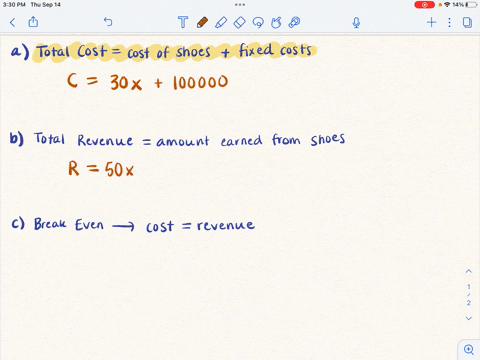 3:30 PM Thu Sep 14
14%
T
a) Total Cost = cost of shoes + fixed costs
C = 30x + 100000
b) Total Revenue = amount earned from shoes
R = 50x
c) Break Even → cost = revenue
1
/
2